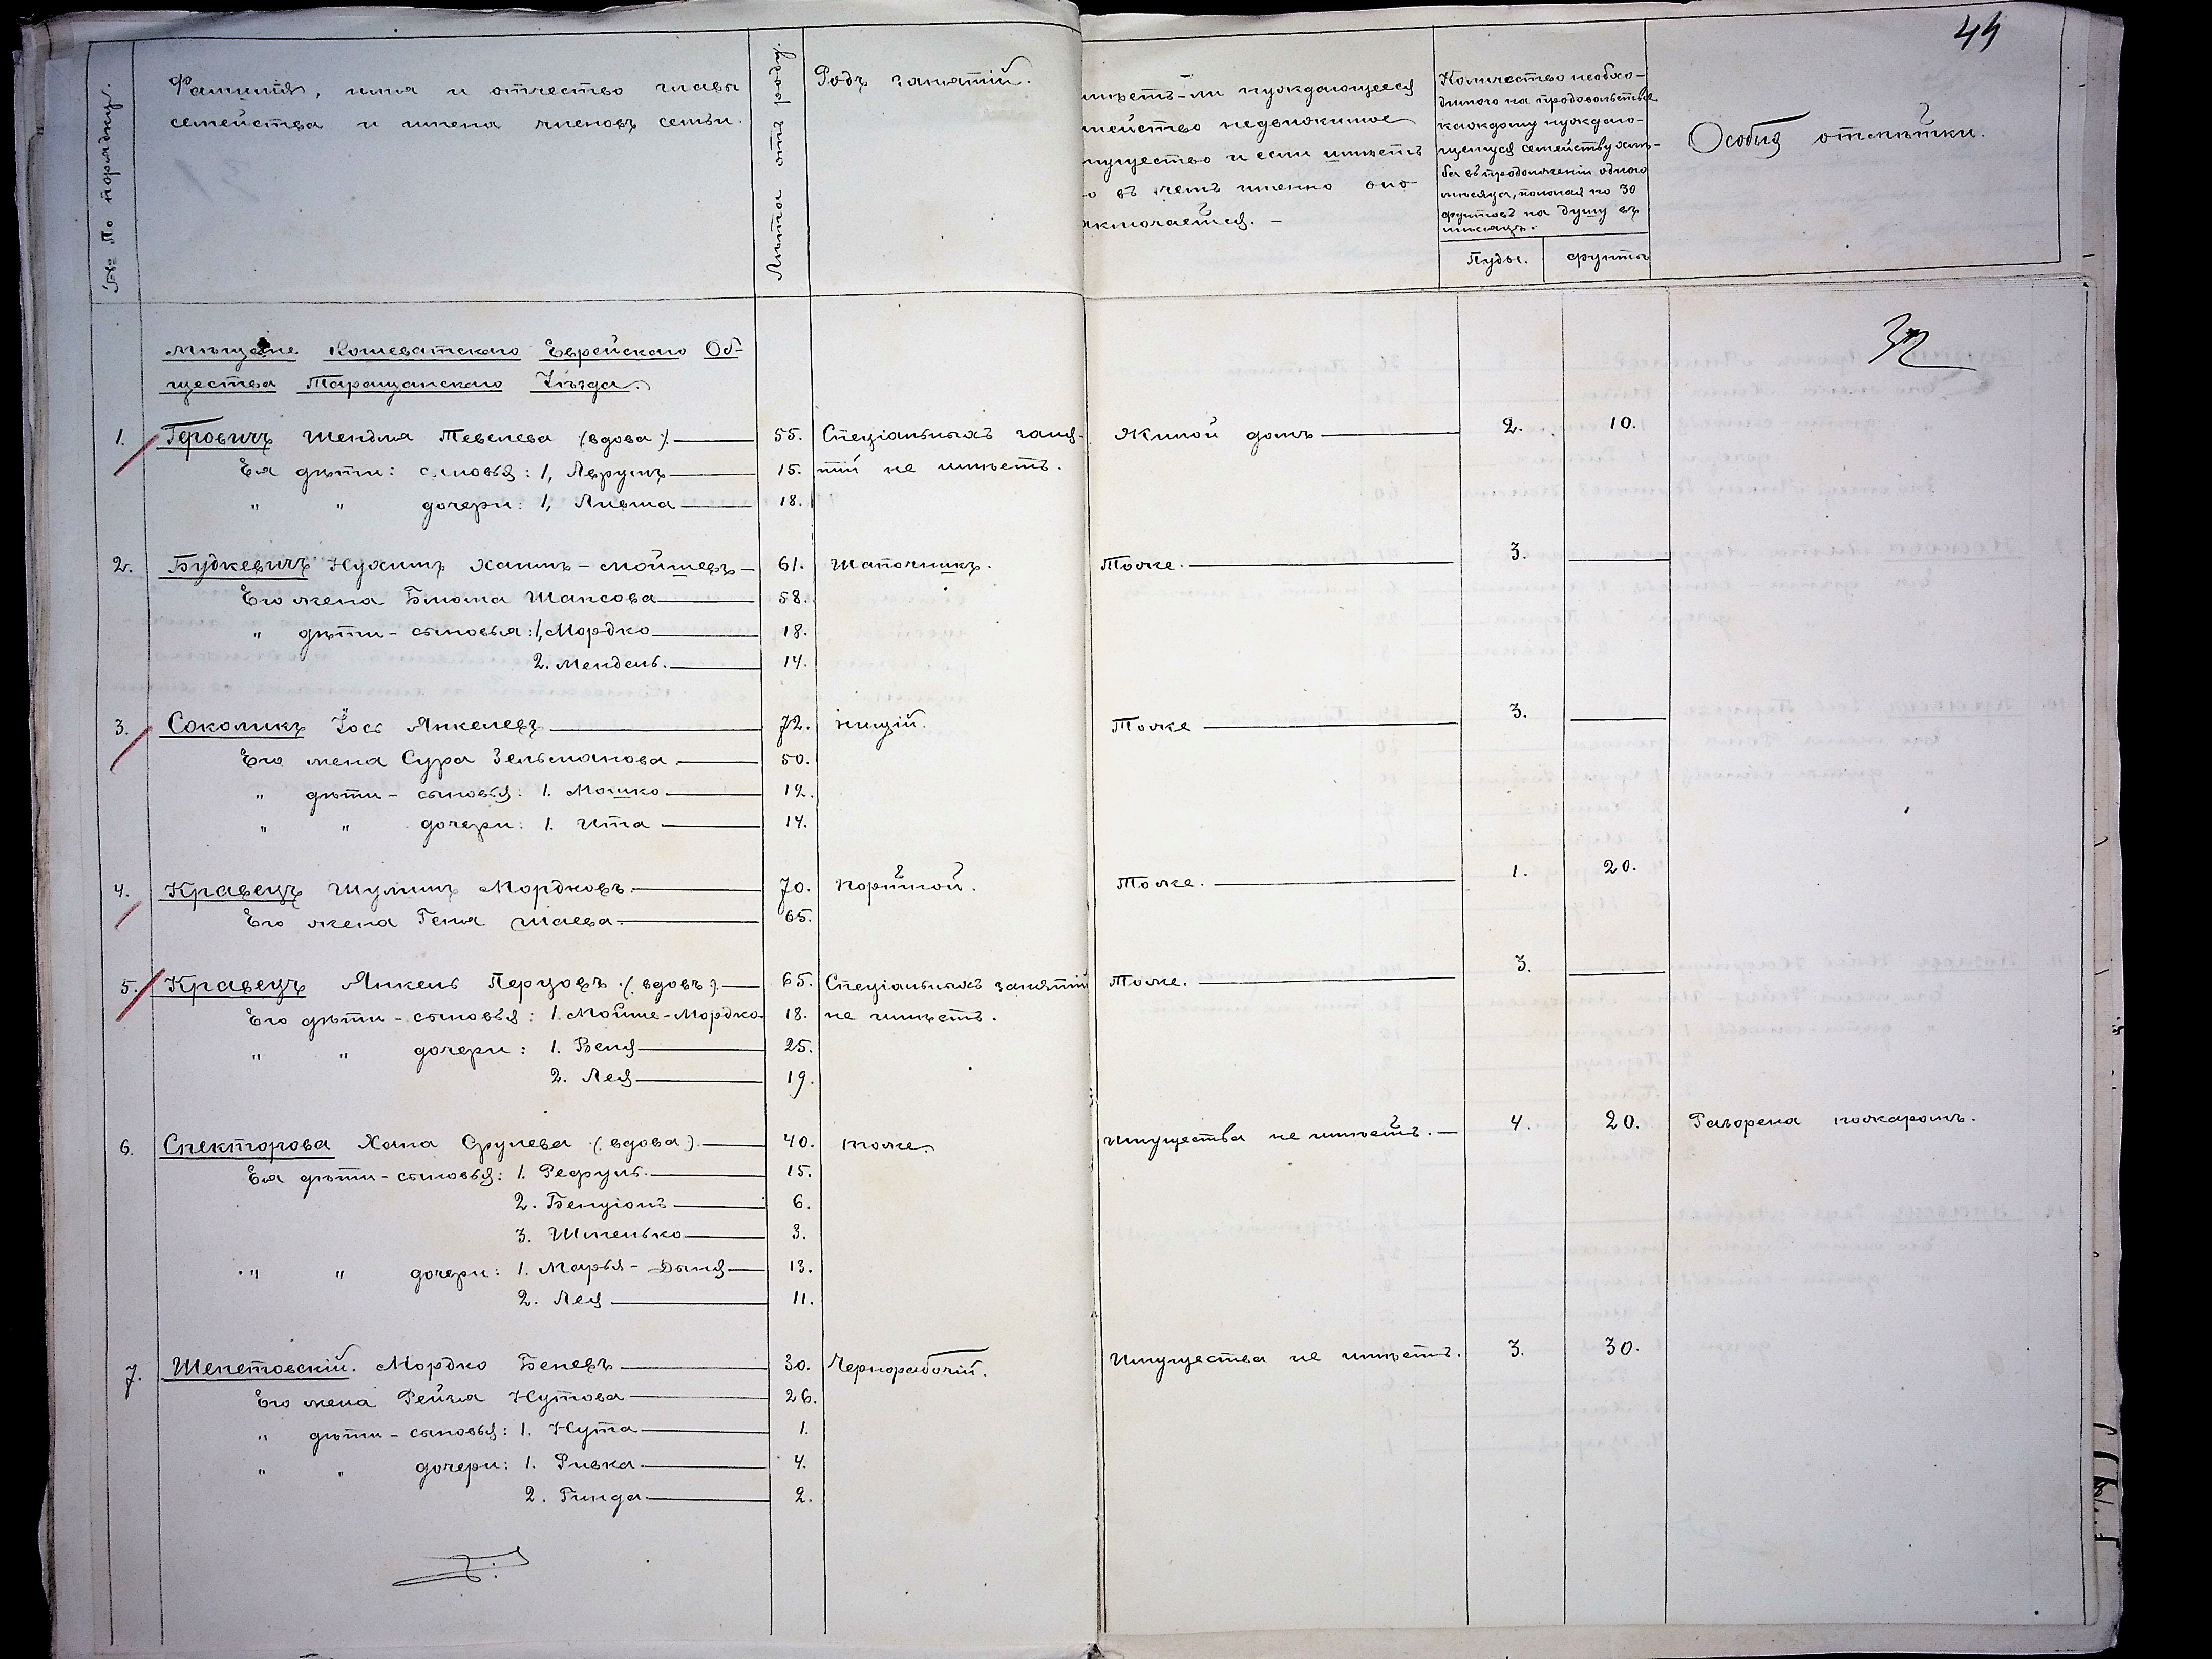 44
№ По порядку.
Фамилія, имя и отчество главы
семейства и имена членовъ семьи.
Лѣта отъ роду.
Родъ занятій.
имѣетъ-ли нуждающееся
мейство недвижимое
мущество и если имѣетъ
о въ чемъ именно оно
аключается. -
Количество необхо-
димого на продовольствіе
каждому нуждаю-
щемуся семейству хлѣ-
ба въ продолженіи одного
мѣсяца, полагая по 30
фунтовъ на душу въ
мѣсяцъ.
Пуды. фунты
Особыя отмѣтки.
32
Мѣщане Кошеватскаго Еврейскаго Об-
щества Таращанскаго Уѣзда.
1. Геровичъ Шендля Тевелева (вдова). 55. Спеціальныхъ заня- Жилой домъ 2. 10.
Ея дѣти: сыновья: 1, Аврумъ 15. тій не имѣетъ.
" " дочери: 1, Ливша 18.
2. Будкевичъ Нухимъ Хаимъ-Мойшевъ 61. Шапочникъ. Тоже. 3.
Его жена Блюма Шапсова 58.
" дѣти - сыновья: 1, Мордко 18.
2. Мендель. 14.
3. Соколикъ Іось Янкелевъ 72. нищій. Тоже 3.
Его жена Сура Зельманова 50.
" дѣти - сыновья: 1. Мошко 12.
" " дочери: 1. Ита 14.
4. Кравецъ Шулимъ Мордковъ 70. портной. Тоже. 1. 20.
Его жена Геня Шаева 65.
5. Кравецъ Янкель Перцовъ (вдовъ). 65. Спеціальныхъ занятій Тоже. 3.
Его дѣти - сыновья: 1. Мойше-Мордко 18. не имѣетъ.
" " дочери: 1. Веня 25.
2. Лея 19.
6. Спекторова Хана Срулева (вдова). 40. тоже. Имущества не имѣетъ. - 4. 20. Разорена пожаромъ.
Ея дѣти - сыновья: 1. Рефуль 15.
2. Бенціонъ 6.
3. Шмелько 3.
" " дочери: 1. Марья-Дыня 13.
2. Лея 11.
7. Шепетовскій. Мордко Беневъ 30. Чернорабочій. Имущества не имѣетъ. 3. 30.
Его жена Рейзля Нутова 26.
" дѣти - сыновья: 1. Нута 1.
" " дочери: 1. Ривка. 4.
2. Гинда 2.